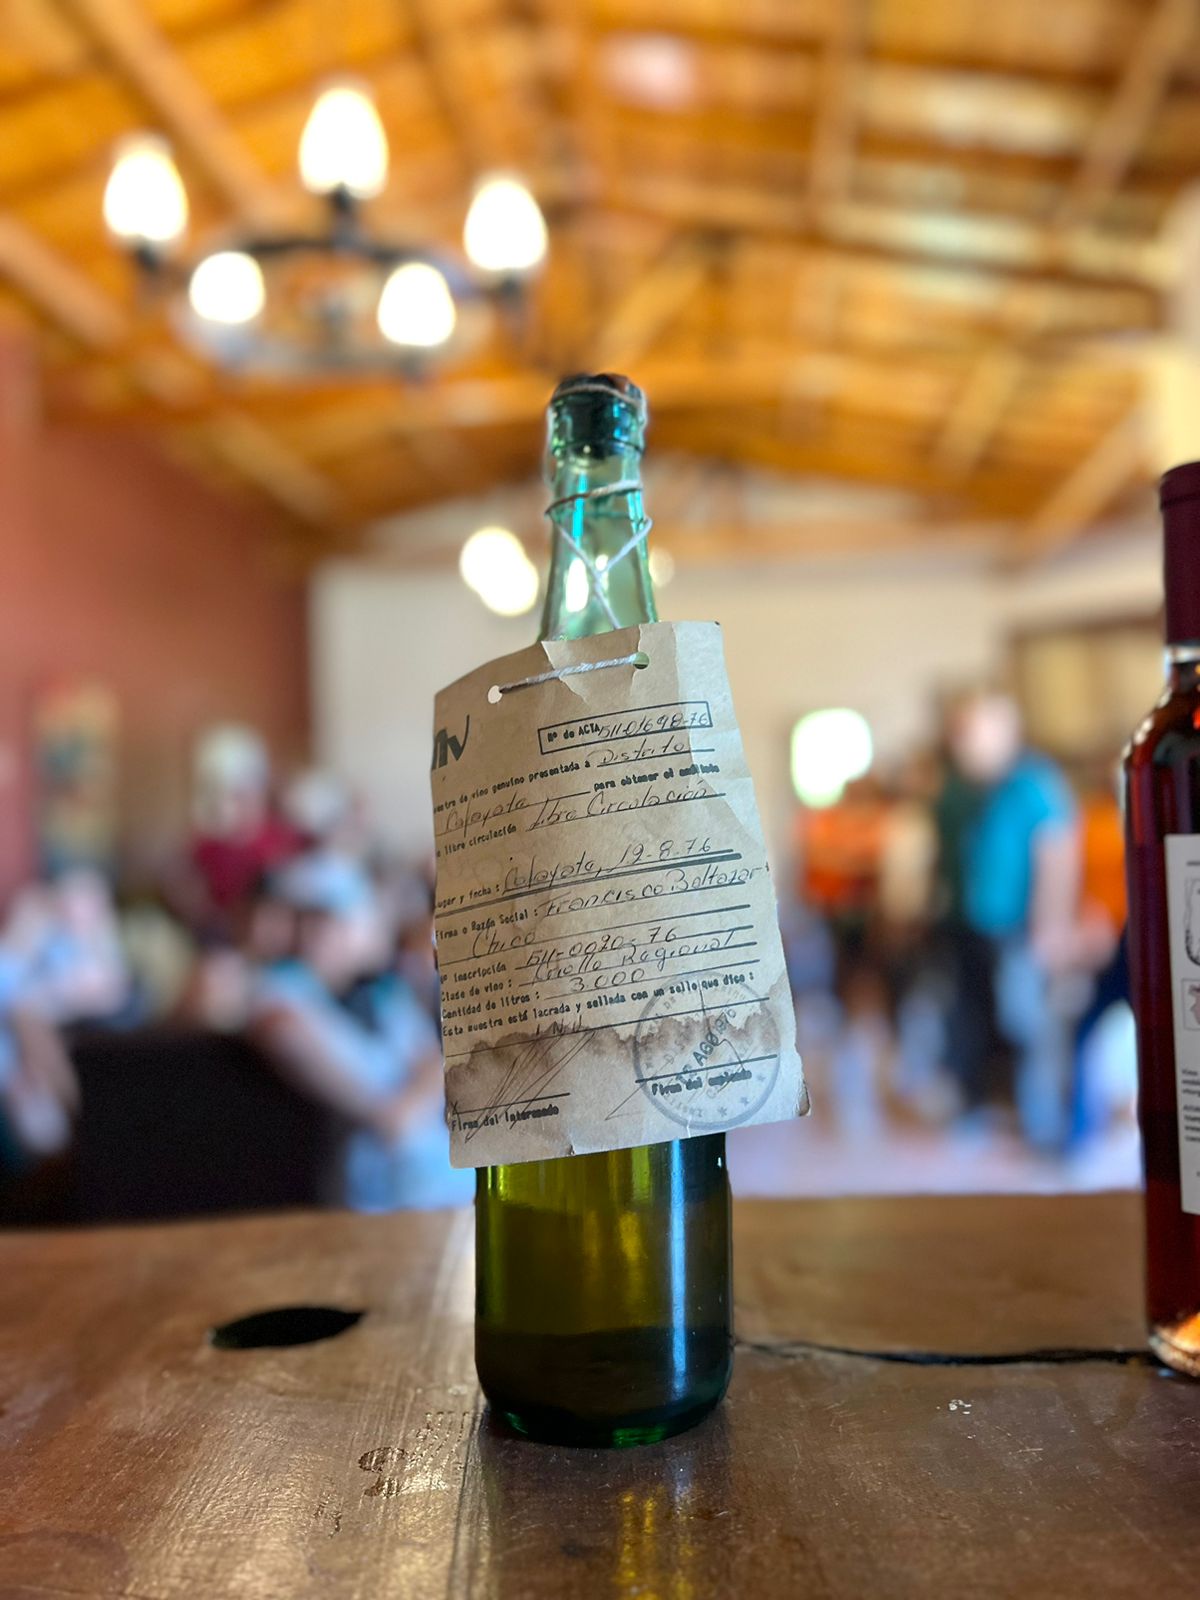 Nº de ACTA 511-01698-76
de vino genuino presentada a Distrito
Cafayate para obtener el análisis
libre circulación Libre Circulación
Lugar y fecha: Cafayate, 19-8-76
Firma o Razón Social: Francisco Baltazar
Chico
Nº inscripción 511-0020-76
Clase de vino: Criollo Regional
Cantidad de litros: 3.000
Esta muestra está lacrada y sellada con un sello que dice:
I N V
AGO 1976
Firma del Interesado
Firma del empleado